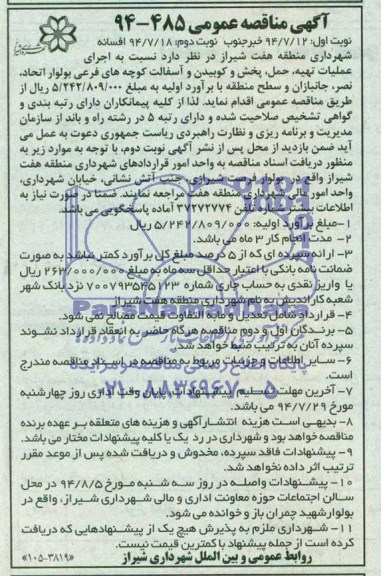 آگهی مناقصه عمومی ۴۸۵-۹۴
نوبت اول: ۹۴/۷/۱۲ خبرجنوب نوبت دوم: ۹۴/۷/۱۸ افسانه
شهرداری منطقه هفت شیراز در نظر دارد نسبت به اجرای
عملیات تهیه، حمل، پخش و کوبیدن و آسفالت کوچه های فرعی بولوار اتحاد،
نصر، جانبازان و سطح منطقه با برآورد اولیه به مبلغ ۵/۲۴۲/۸۰۹/۰۰۰ ریال از
طریق مناقصه عمومی اقدام نماید. لذا از کلیه پیمانکاران دارای رتبه بندی و
گواهی تشخیص صلاحیت شده و دارای رتبه ۵ در رشته راه و باند از سازمان
مدیریت و برنامه ریزی و نظارت راهبردی ریاست جمهوری دعوت به عمل می
آید ضمن بازدید از محل پس از نشر آگهی نوبت دوم، با توجه به موارد زیر به
منظور دریافت اسناد مناقصه به واحد امور قراردادهای شهرداری منطقه هفت
شیراز واقع در بولوار فرصت شیرازی، جنب آتش نشانی، خیابان شهرداری،
واحد امور مالی شهرداری منطقه هفت مراجعه نمایند. ضمنا در صورت نیاز به
اطلاعات بیشتر شماره تلفن ۳۷۲۷۲۷۷۴ آماده پاسخگویی می باشد.
۱-مبلغ برآورد اولیه: ۵/۲۴۲/۸۰۹/۰۰۰ ریال
۲- مدت انجام کار ۳ ماه می باشد.
۳- ارائه سپرده ای که از ۵ درصد مبلغ کل برآورد کمتر نباشد به صورت
ضمانت نامه بانکی با اعتبار حداقل سه ماه به مبلغ ۲۶۳/۰۰۰/۰۰۰ ریال
یا واریز نقدی به حساب جاری شماره ۷۰۰۷۹۳۵۴۵۱۲۳ نزد بانک شهر
شعبه کاراندیش به نام شهرداری منطقه هفت شیراز
۴- قرارداد شامل تعدیل و مابه التفاوت قیمت مصالح نمی شود.
۵- برندگان اول و دوم مناقصه هرگاه حاضر به انعقاد قرارداد نشوند
سپرده آنان به ترتیب ضبط خواهد شد.
۶- سایر اطلاعات و جزئیات مربوط به مناقصه در اسناد مناقصه مندرج
است.
۷- آخرین مهلت تسلیم پیشنهادات، پایان وقت اداری روز چهارشنبه
مورخ ۹۴/۷/۲۹ می باشد.
۸- بدیهی است هزینه انتشار آگهی و هزینه های متعلقه بر عهده برنده
مناقصه خواهد بود و شهرداری در رد یک یا کلیه پیشنهادات مختار می باشد.
۹- پیشنهادات فاقد سپرده، مخدوش و دریافت شده پس از موعد مقرر
ترتیب اثر داده نخواهد شد.
۱۰- پیشنهادات واصله در روز سه شنبه مورخ ۹۴/۸/۵ در محل
سالن اجتماعات حوزه معاونت اداری و مالی شهرداری شیراز، واقع در
بولوار شهید چمران باز و خوانده می شود.
۱۱- شهرداری ملزم به پذیرش هیچ یک از پیشنهادهایی که دریافت
کرده است از جمله پیشنهاد با کمترین قیمت نیست.
روابط عمومی و بین الملل شهرداری شیراز «۱۰۵-۳۸۱۹»
پایگاه اطلاع رسانی مناقصه و مزایده
۰۲۱-۸۸۳۴۹۶۷۰-۵